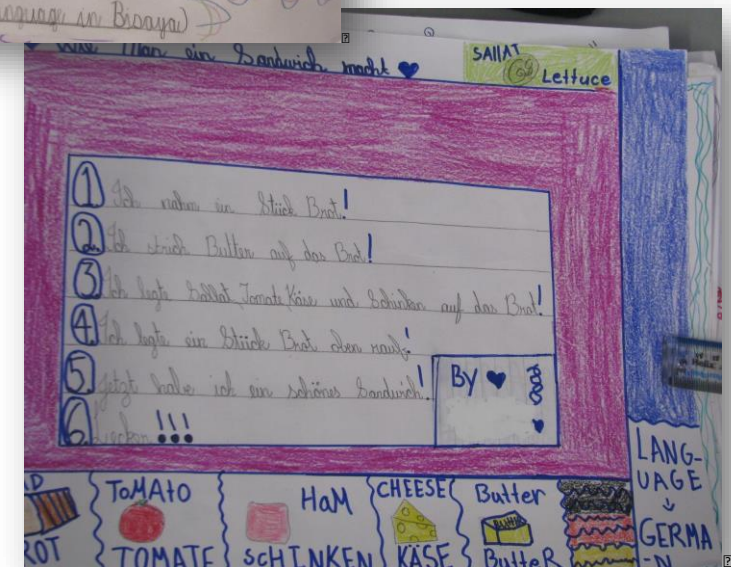 anguage in Bisaya)
Wie Man ein Sandwich macht
SAllAT
Lettuce
1 Ich nahm ein Stück Brot!
2. Ich strich Butter auf das Brot!
3 Ich legte Sallat, Tomate, Käse und Schinken auf das Brot!
4. Ich legte ein Stück Brot oben rauf!
5. Jetzt habe ich ein schönes Sandwich!
6. Lecker!!!
By
LANG-
UAGE
GERMA
-N
ROT
ToMAtO
TOMATE
HaM
SCHINKEN
CHEESE
KÄSE
Butter
BUTTER
ButteR